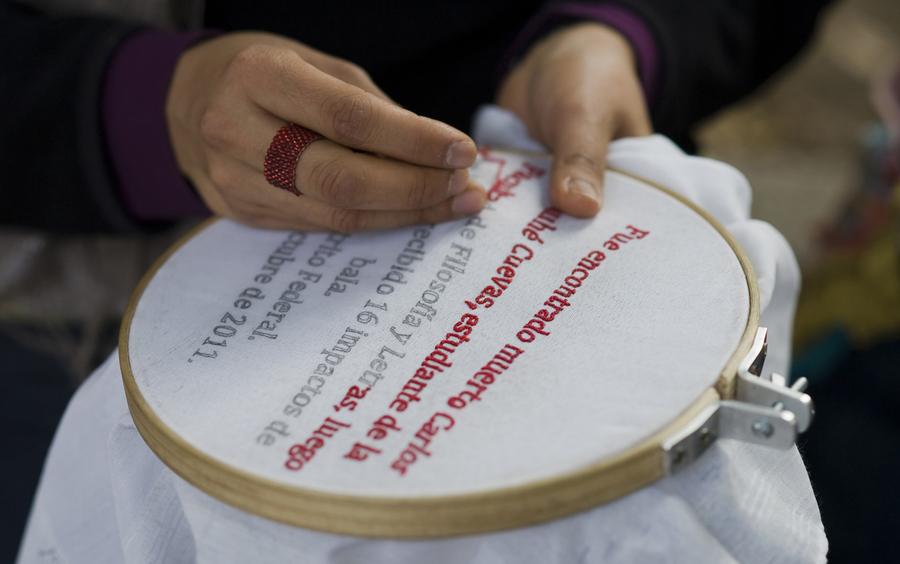 Fue encontrado muerto Carlos
uhé Cuevas, estudiante de la
de Filosofía y Letras, luego
ecibido 16 impactos de
bala.
rito Federal.
tubre de 2011.